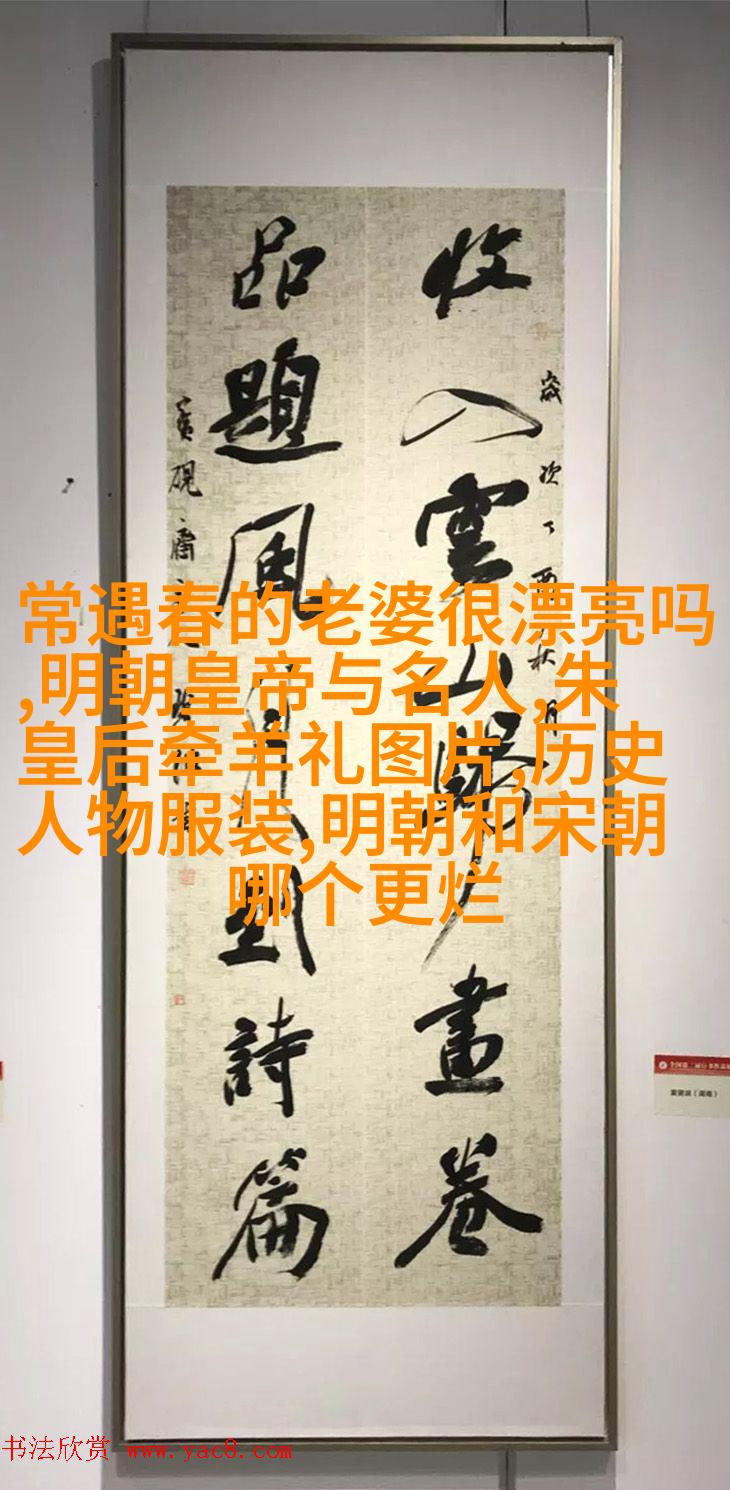 收入雲山歸畫卷
品題風月到詩篇
歲次丁酉秋月
常遇春的老婆很漂亮吗
,明朝皇帝与名人,朱
皇后牵羊礼图片,历史
人物服装,明朝和宋朝
哪个更烂
书法欣赏 www.yac8.com